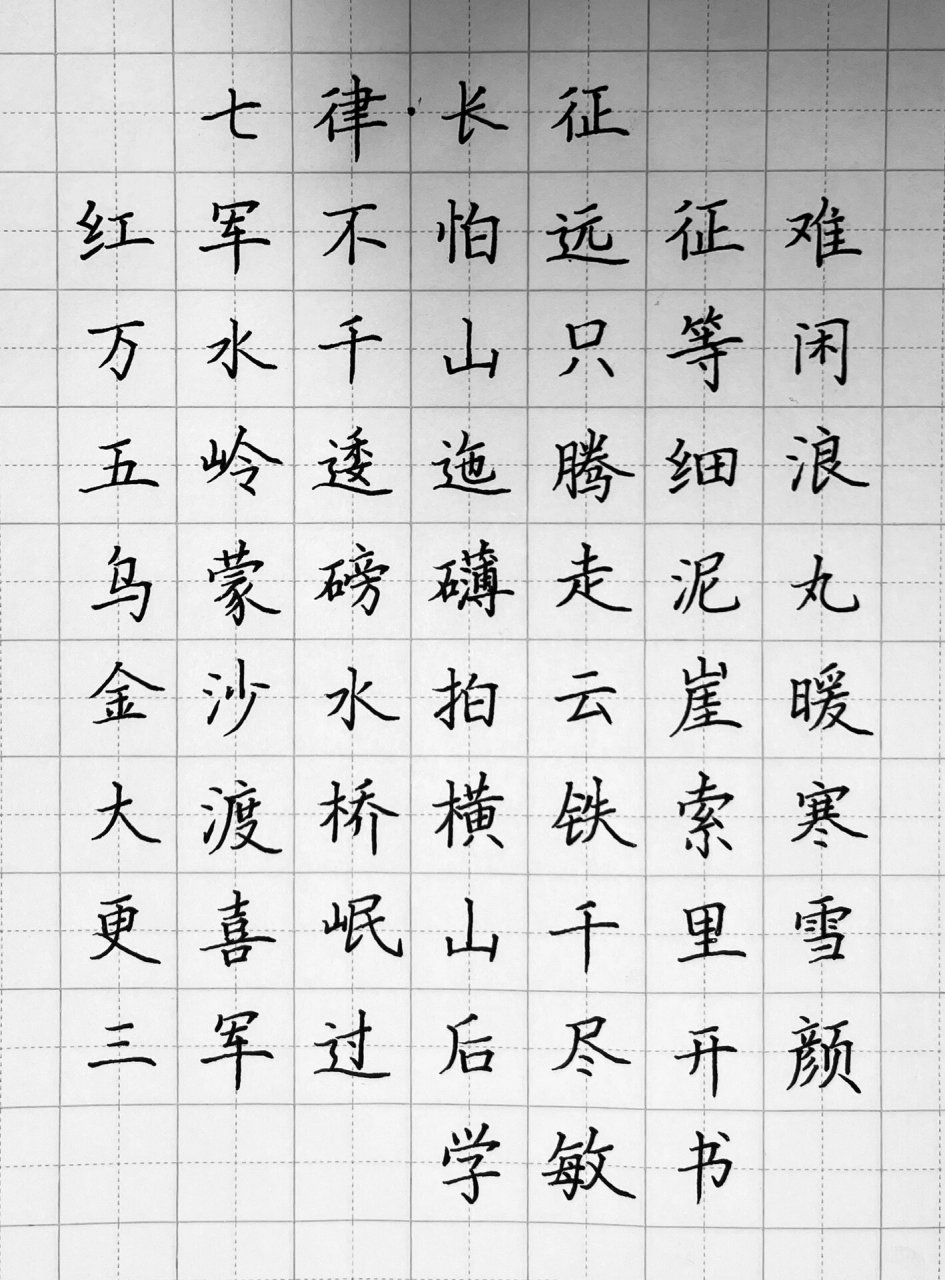 七律·长征
红军不怕远征难
万水千山只等闲
五岭逶迤腾细浪
乌蒙磅礴走泥丸
金沙水拍云崖暖
大渡桥横铁索寒
更喜岷山千里雪
三军过后尽开颜
学敏书